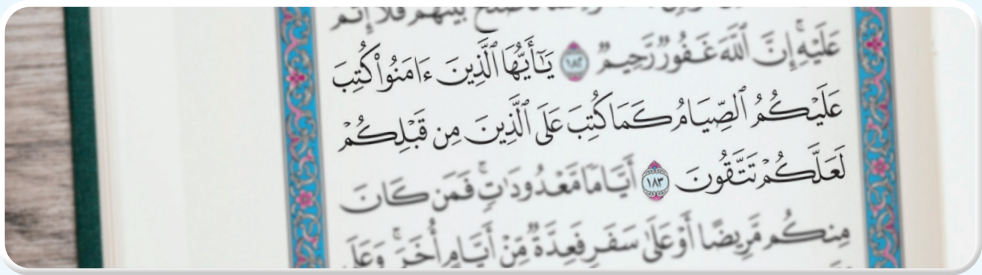 بَيْنَهُمْ فَلَا إِثْمَ
عَلَيْهِ إِنَّ ٱللَّهَ غَفُورٌ رَّحِيمٌ ١٨٢ يَـٰٓأَيُّهَا ٱلَّذِينَ ءَامَنُوا۟ كُتِبَ
عَلَيْكُمُ ٱلصِّيَامُ كَمَا كُتِبَ عَلَى ٱلَّذِينَ مِن قَبْلِكُمْ
لَعَلَّكُمْ تَتَّقُونَ ١٨٣ أَيَّامًا مَّعْدُودَٰتٍ ۚ فَمَن كَانَ
مِنكُم مَّرِيضًا أَوْ عَلَىٰ سَفَرٍ فَعِدَّةٌ مِّنْ أَيَّامٍ أُخَرَ ۚ وَعَلَى